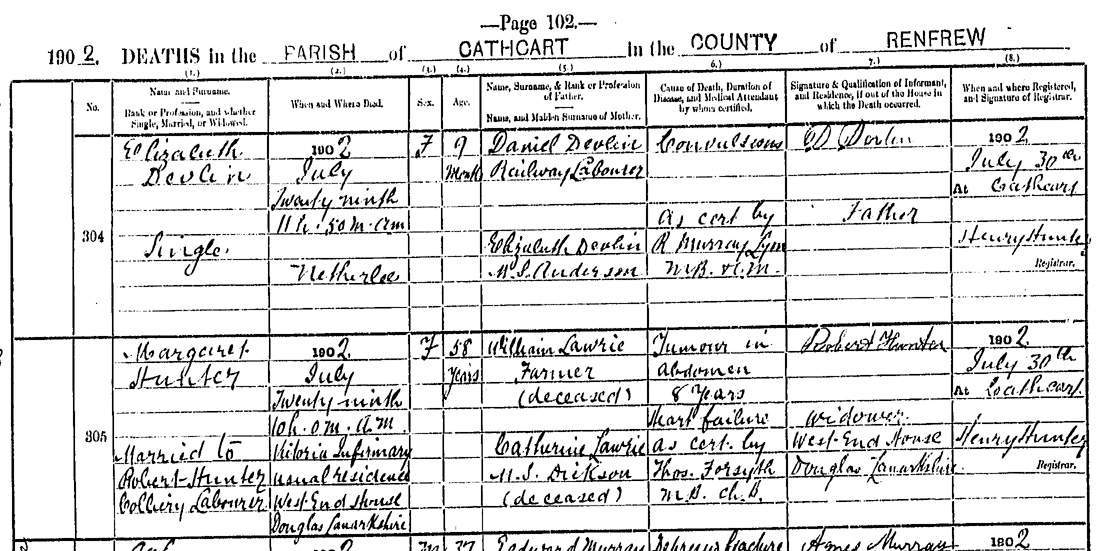 —Page 102.—
1902. DEATHS in the PARISH of CATHCART in the COUNTY of RENFREW
(1.) (2.) (3.) (4.) (5.) 6.) 7.) (8.)
No.
Name and Surname.
Rank or Profession, and whether
Single, Married, or Widowed.
When and Where Died.
Sex.
Age.
Name, Surname, & Rank or Profession
of Father.
Name, and Maiden Surname of Mother.
Cause of Death, Duration of
Disease, and Medical Attendant
by whom certified.
Signature & Qualification of Informant,
and Residence, if out of the House in
which the Death occurred.
When and where Registered,
and Signature of Registrar.
304
Elizabeth
Devlin
Single
1902
July
Twenty ninth
11 h. 50 m. am
Netherlee
F
9
Months
Daniel Devlin
Railway Labourer
Elizabeth Devlin
M.S. Anderson
Convulsions
As cert by
R. Murray Lyon
M.B. & C.M.
D Devlin
Father
1902
July 30th
At Cathcart
Henry Hunter
Registrar.
305
Margaret
Hunter
Married to
Robert Hunter
Colliery Labourer
1902
July
Twenty ninth
10 h. 0 m. A.M.
Vitoria Infirmary
usual residence
West End House
Douglas Lanarkshire
F
58
Years
William Lawrie
Farmer
(deceased)
Catherine Lawrie
M.S. Dickson
(deceased)
Tumour in
abdomen
8 Years
Heart failure
as cert. by
Thos. Forsyth
M.B. Ch.B.
Robert Hunter
widower.
West-End House
Douglas Lanarkshire
1902
July 30th
At Cathcart.
Henry Hunter
Registrar.
1902
M
77
Edward Murray
fracture
Agnes Murray
1902